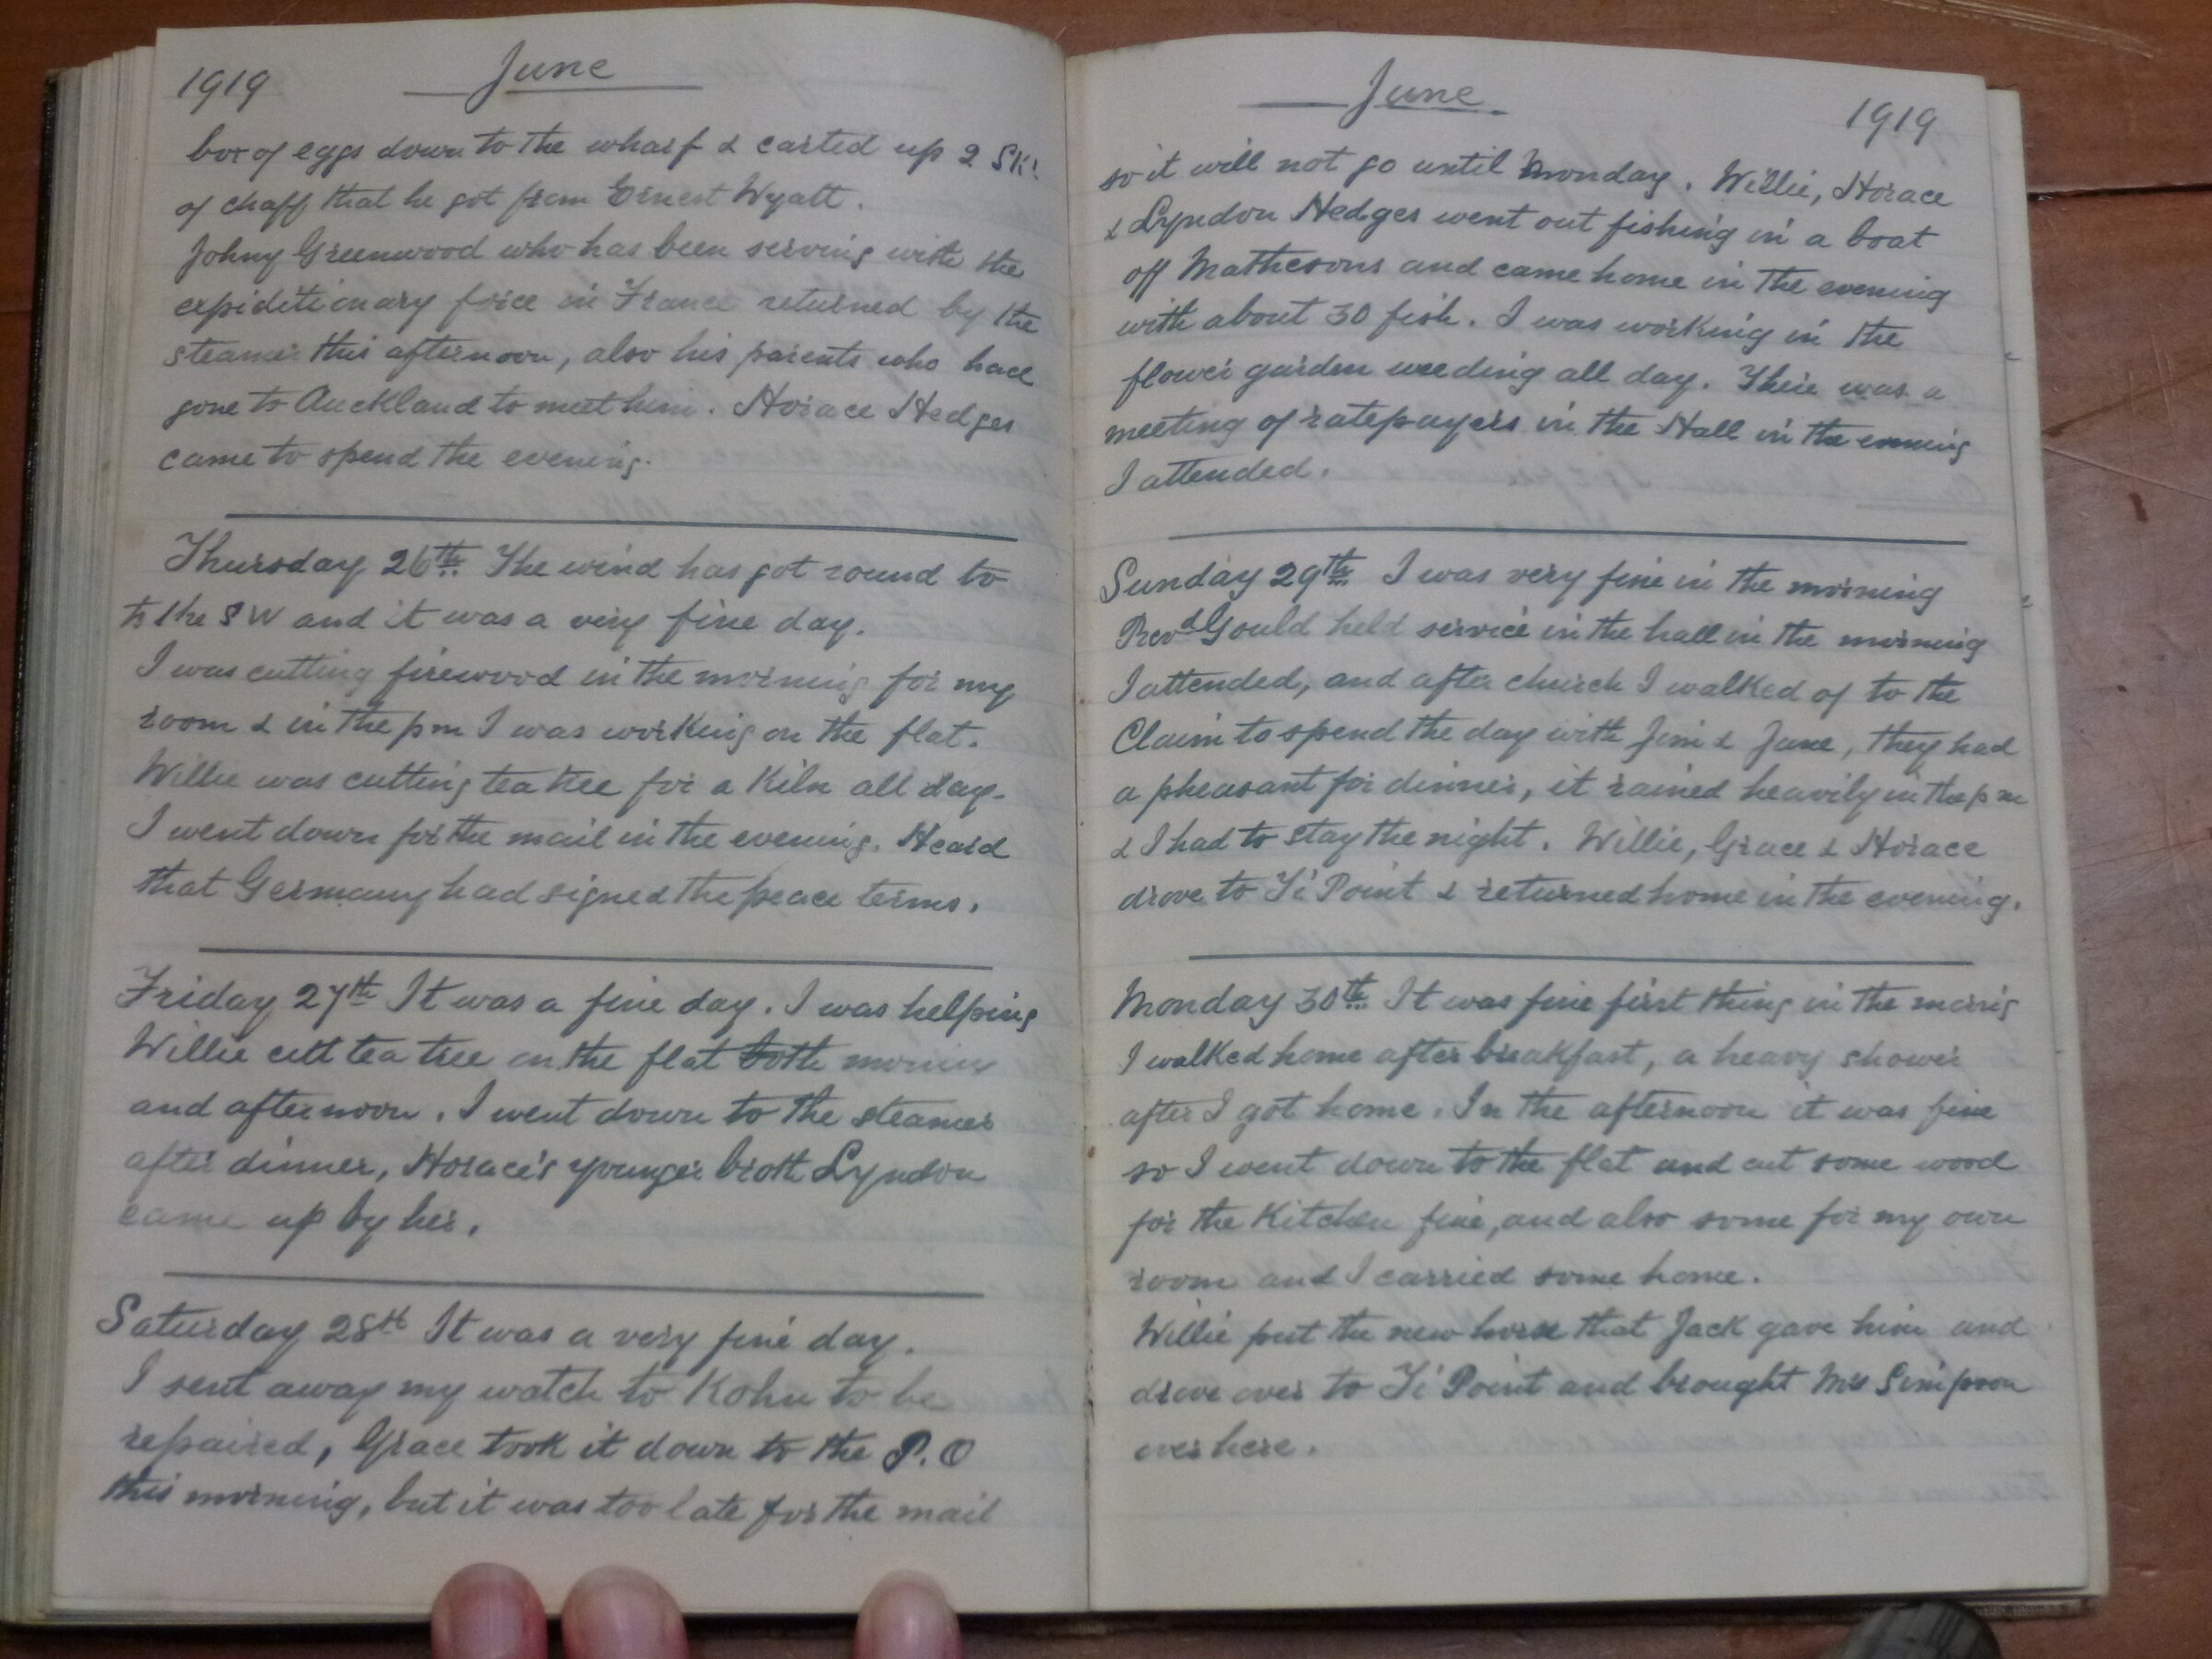 1919 June
box of eggs down to the wharf & carted up 2 Sks
of chaff that he got from Ernest Wyatt.
Johny Greenwood who has been serving with the
expiditionary force in France returned by the
steamer this afternoon, also his parents who had
gone to Auckland to meet him. Horace Hedges
came to spend the evening.
Thursday 26th The wind has got round to
to the SW and it was a very fine day.
I was cutting firewood in the morning for my
room & in the pm I was working on the flat.
Willie was cutting tea tree for a Kiln all day.
I went down for the mail in the evening. Heard
that Germany had signed the peace terms.
Friday 27th It was a fine day. I was helping
Willie cut tea tree on the flat both morning
and afternoon. I went down to the steamer
after dinner, Horace's younger broth Lyndon
came up by her.
Saturday 28th It was a very fine day.
I sent away my watch to Kohn to be
repaired, Grace took it down to the P.O
this morning, but it was too late for the mail
June 1919
so it will not go until Monday. Willie, Horace
& Lyndon Hedges went out fishing in a boat
off Mathesons and came home in the evening
with about 30 fish. I was working in the
flower garden weeding all day. There was a
meeting of ratepayers in the Hall in the evening
I attended.
Sunday 29th I was very fine in the morning
Revd Gould held service in the hall in the morning
I attended, and after church I walked of to the
Claim to spend the day with Jim & Jane, they had
a pheasant for dinner, it rained heavily in the pm
& I had to stay the night. Willie, Grace & Horace
drove to Ti Point & returned home in the evening.
Monday 30th It was fine first thing in the morning
I walked home after breakfast, a heavy shower
after I got home. In the afternoon it was fine
so I went down to the flat and cut some wood
for the Kitchen fire, and also some for my own
room and I carried some home.
Willie put the new horse that Jack gave him and
drove over to Ti Point and brought Mrs Simpson
over here.